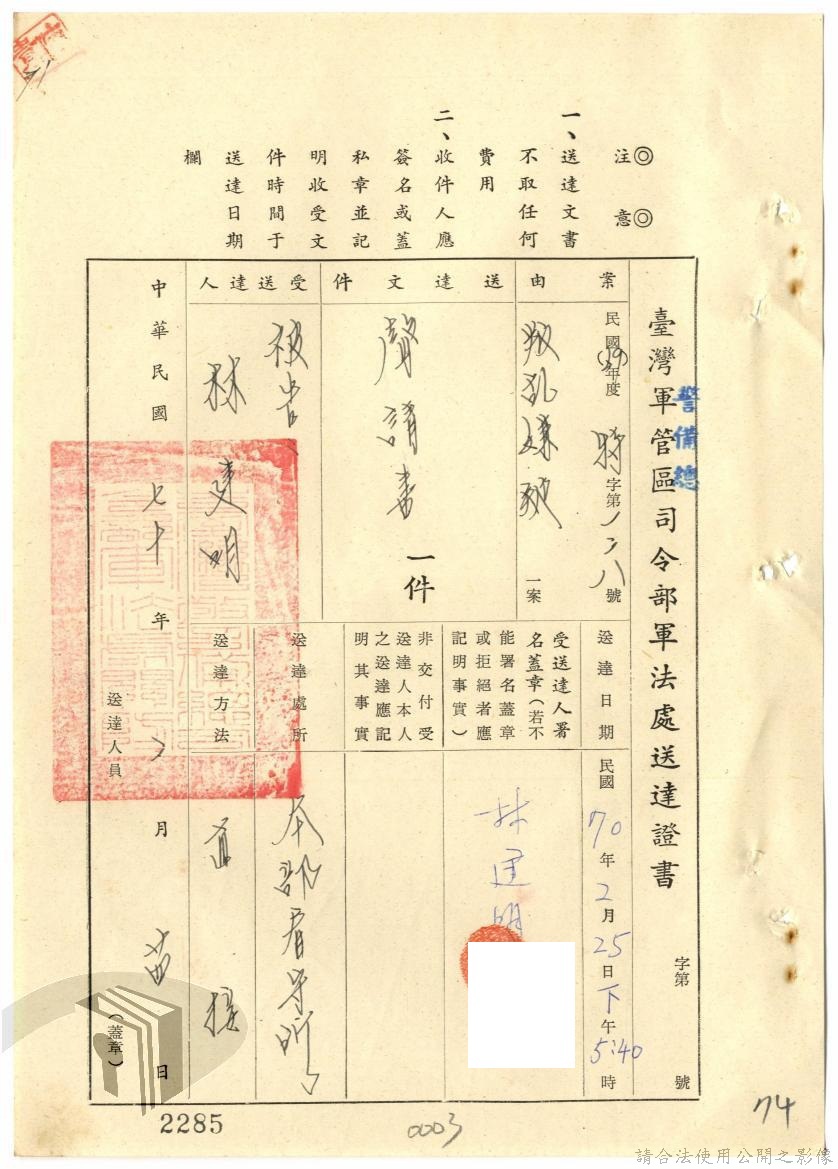 ◎注意◎
一、送達文書
不取任何
費用
二、收件人應
簽名或蓋
私章並記
明收受文
件時間于
送達日期
欄
臺灣軍管區司令部軍法處送達證書
警備總
字第 號
案由
民國(59)年度
字第 號
叛乱嫌疑
一案
送達文件
聲請書
一件
受送達人
被告
林建明
送達日期
民國70年2月25日下午5:40時
受送達人署
名蓋章(若不
能署名蓋章
或拒絕者應
記明事實)
林建明
非交付受
送達人本人
之送達應記
明其事實
送達處所
本部看守所
送達方法
直接
中華民國七十年 月 日
送達人員
(蓋章)
2285
0003
74
請合法使用公開之影像